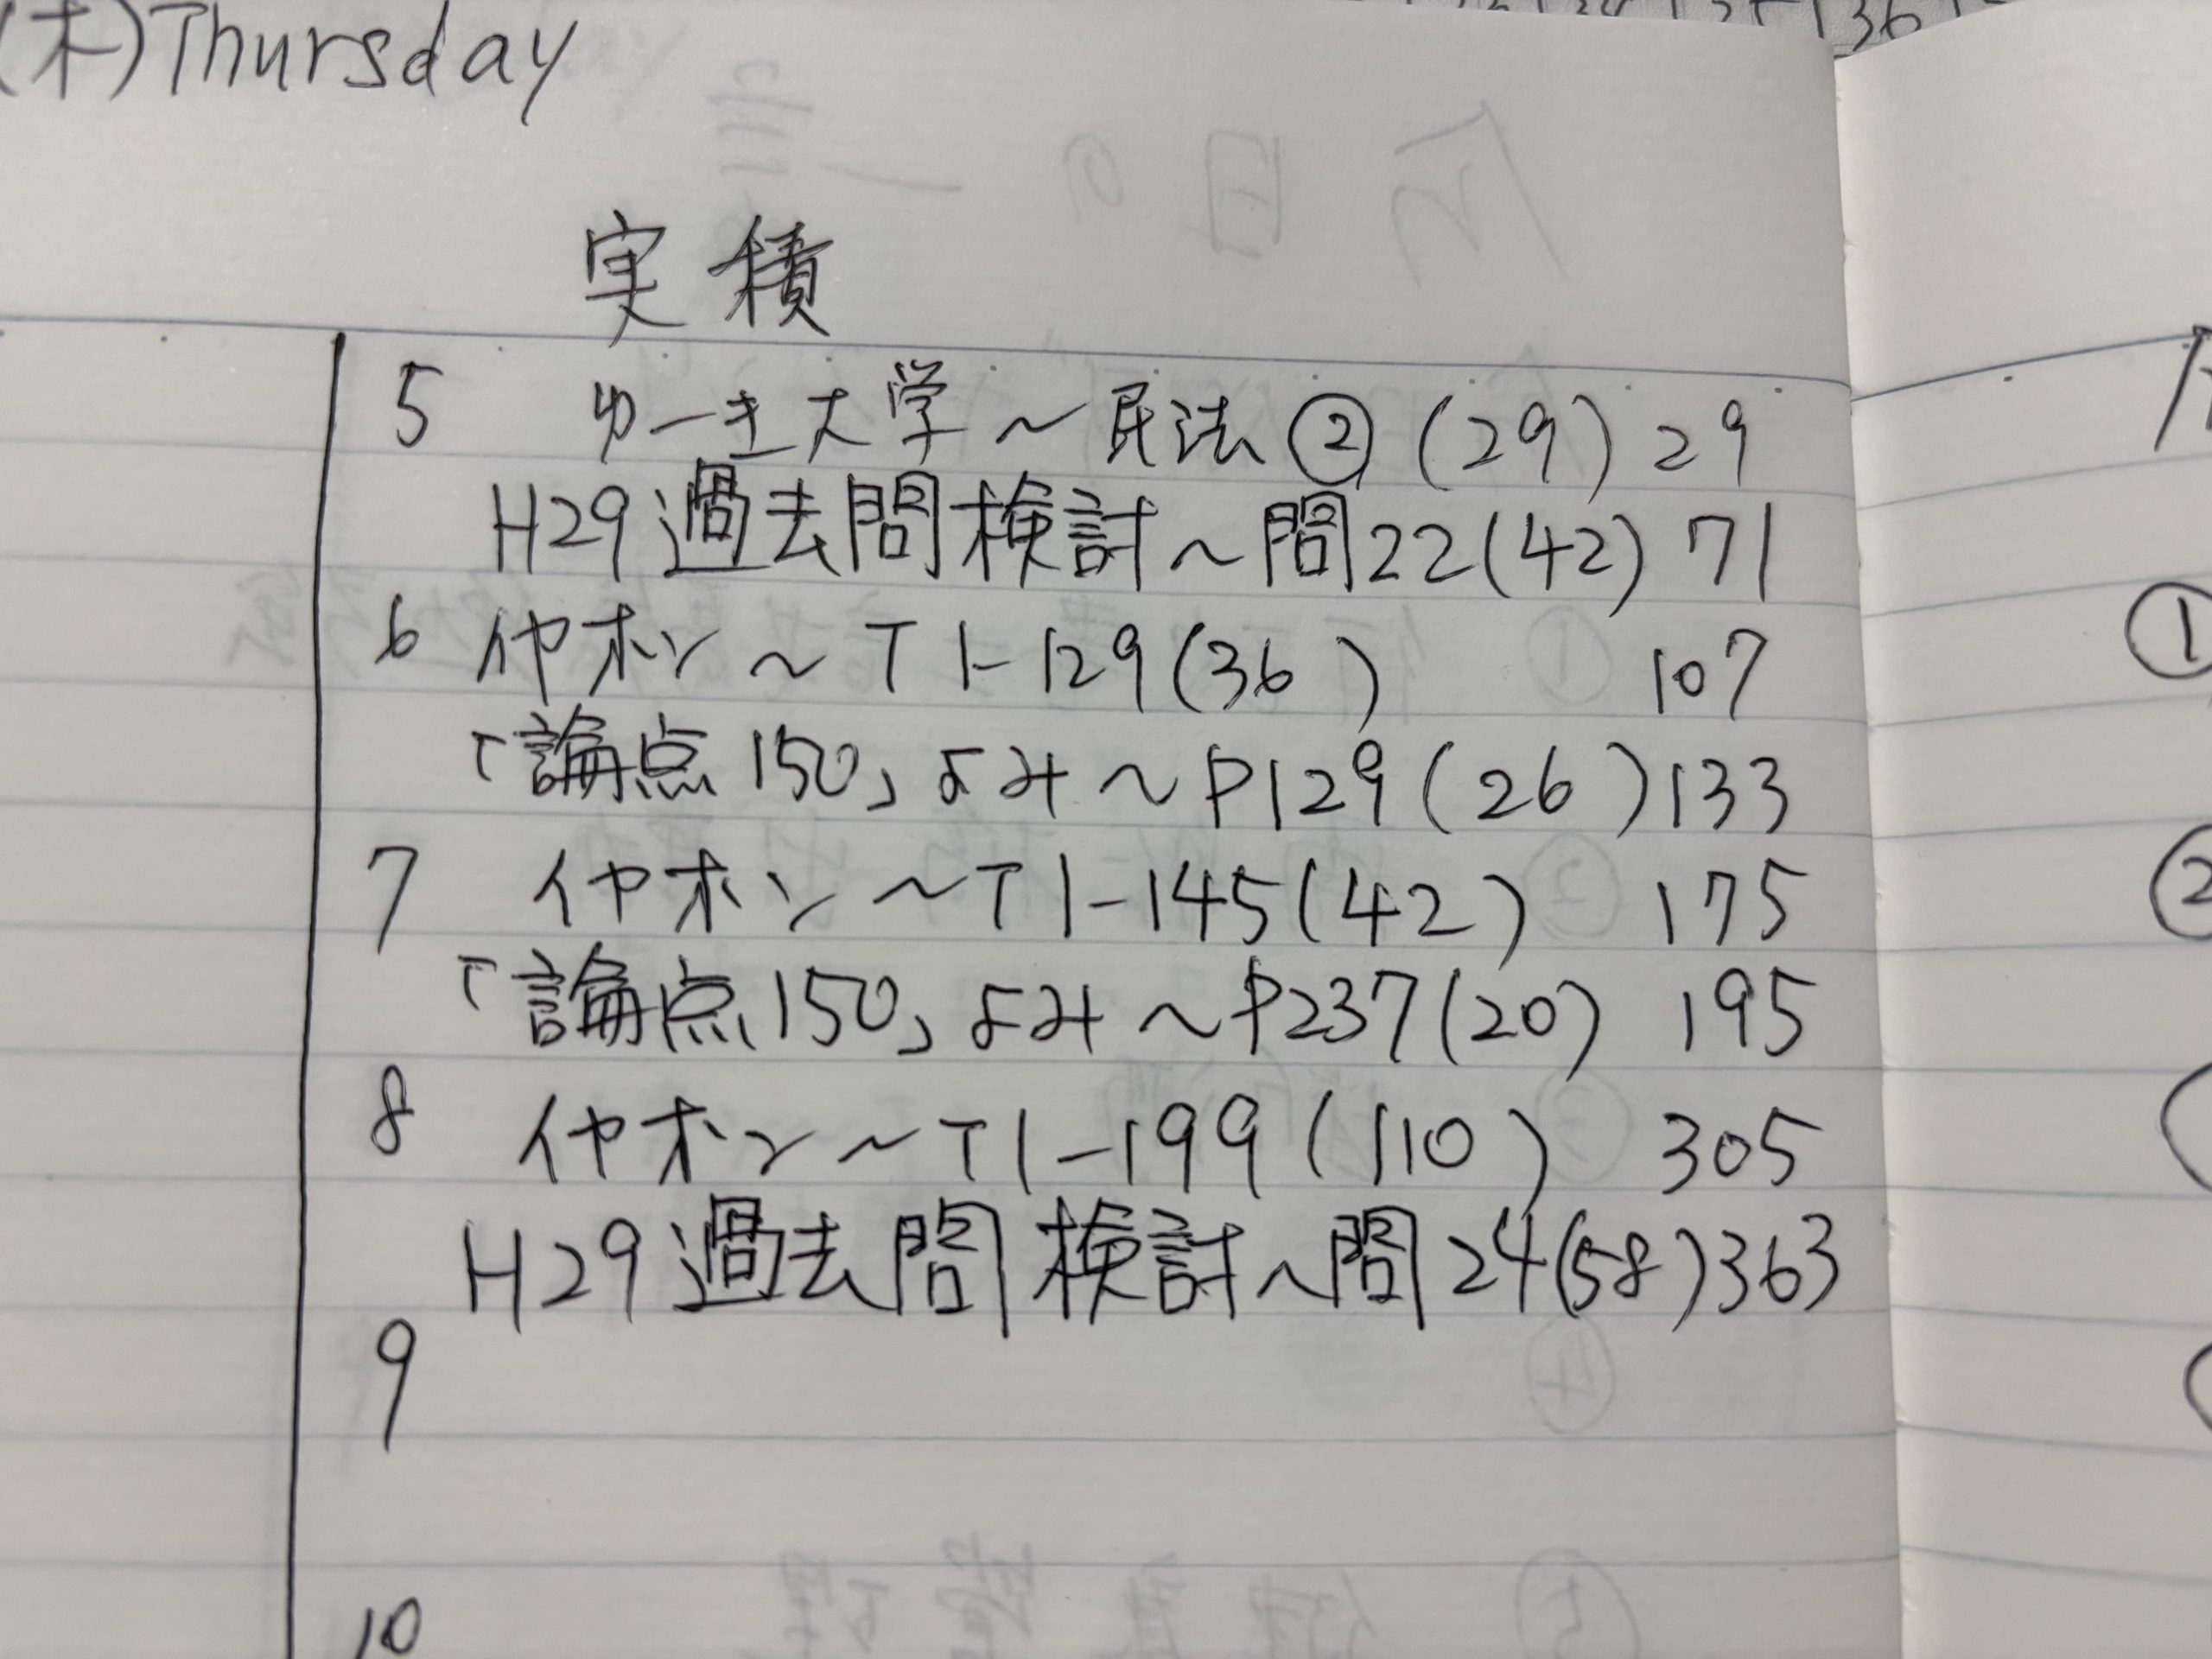 (木)Thursday
実積
5 ゆーき大学〜民法②(29) 29
H29過去問検討〜問22(42) 71
6 イヤホン〜T1-129(36) 107
「論点150」よみ〜P129(26) 133
7 イヤホン〜T1-145(42) 175
「論点150」よみ〜P237(20) 195
8 イヤホン〜T1-199(110) 305
H29過去問検討〜問24(58) 363
9
10
①
②